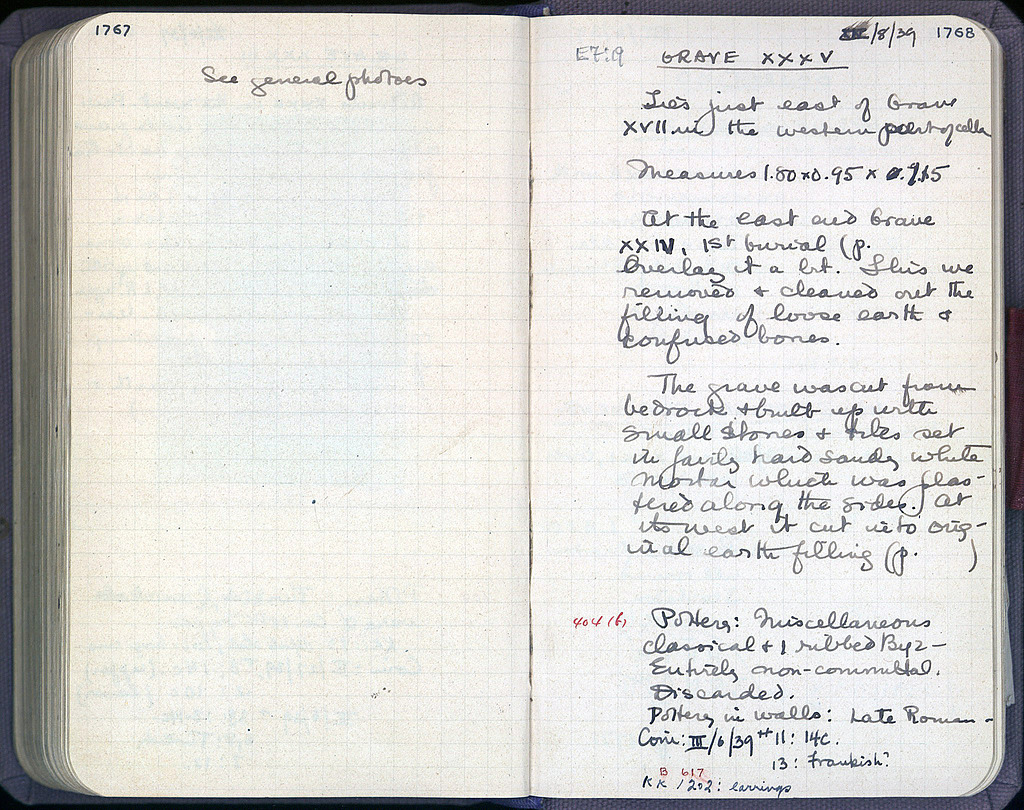 1767
See general photoes
/8/39 1768
E7:9 GRAVE XXXV
Lies just east of Grave
XVII in the western part of cella
Measures 1.80 x 0.95 x
At the east end Grave
XXIV, 1st burial (p.
Overlay it a bit. This we
removed & cleaned out the
filling of loose earth &
confused bones.
The grave was cut from
bedrock & built up with
small stones & tiles set
in fairly hard sandy white
mortar which was plas-
tered along the sides. At
its west it cut into orig-
inal earth filling (p. )
404 (6) Pottery: Miscellaneous
classical & 1 ribbed Byz –
Entirely non-committal.
Discarded.
Pottery in walls: Late Roman –
Coin: III/6/39 # 11: 14C.
13: Frankish?
B 617
KK 1202: earrings